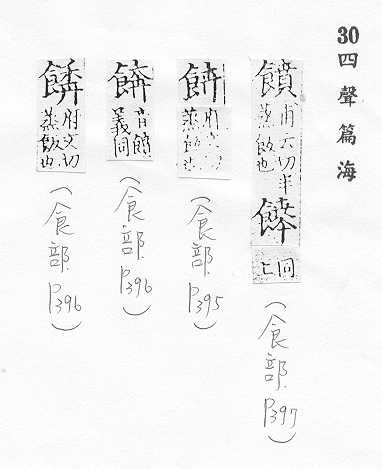 30四聲篇海
饙 甫文切半蒸飯也
餴 同上
(食部 P397)
蒸飯也
(食部 P395)
音饙義同
(食部 P396)
府文切蒸飯也
(食部 P396)